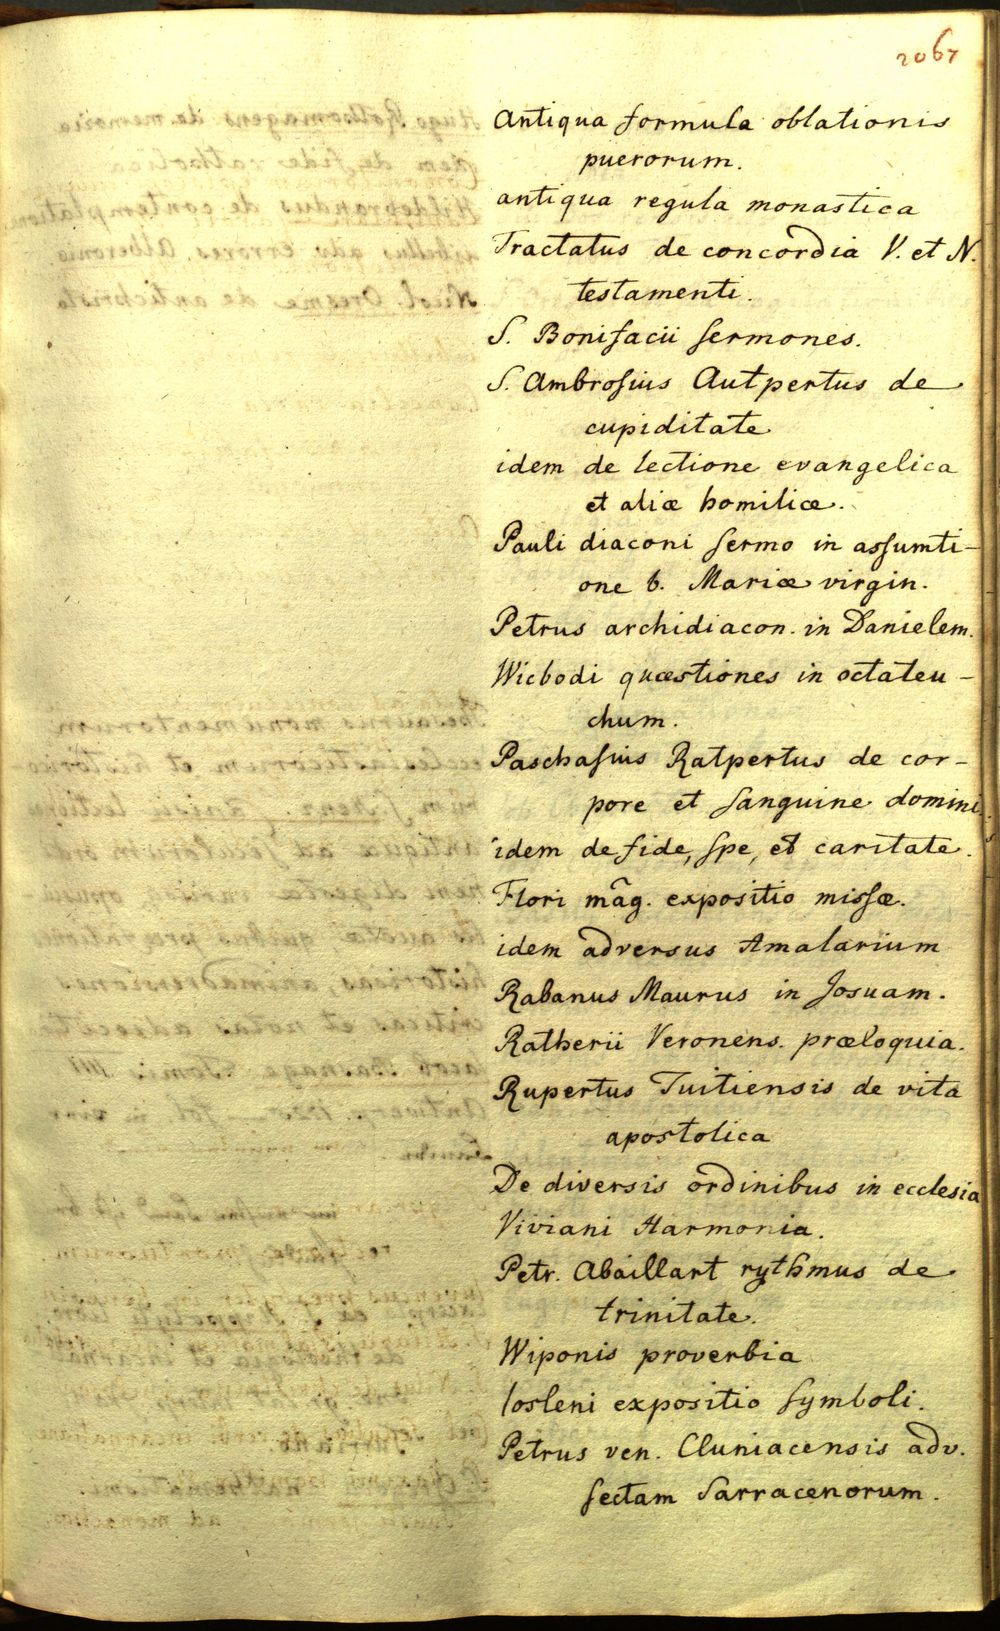 2067
Antiqua formula oblationis
puerorum.
antiqua regula monastica
Tractatus de concordia V. et N.
testamenti.
S. Bonifacii sermones.
S. Ambrosius Autpertus de
cupiditate
idem de lectione evangelica
et aliæ homiliæ.
Pauli diaconi sermo in assumti-
one b. Mariæ virgin.
Petrus archidiacon. in Danielem.
Wicbodi quæstiones in octateu-
chum.
Paschasius Ratpertus de cor-
pore et sanguine domini
idem de fide, spe, et caritate.
Flori mag. expositio missæ.
idem adversus Amalarium
Rabanus Maurus in Josuam.
Ratherii Veronens. præloquia.
Rupertus Tuitiensis de vita
apostolica
De diversis ordinibus in ecclesia
Viviani Harmonia.
Petr. Abaillart rythmus de
trinitate.
Wiponis proverbia
Josleni expositio symboli.
Petrus ven. Cluniacensis adv.
sectam Sarracenorum.